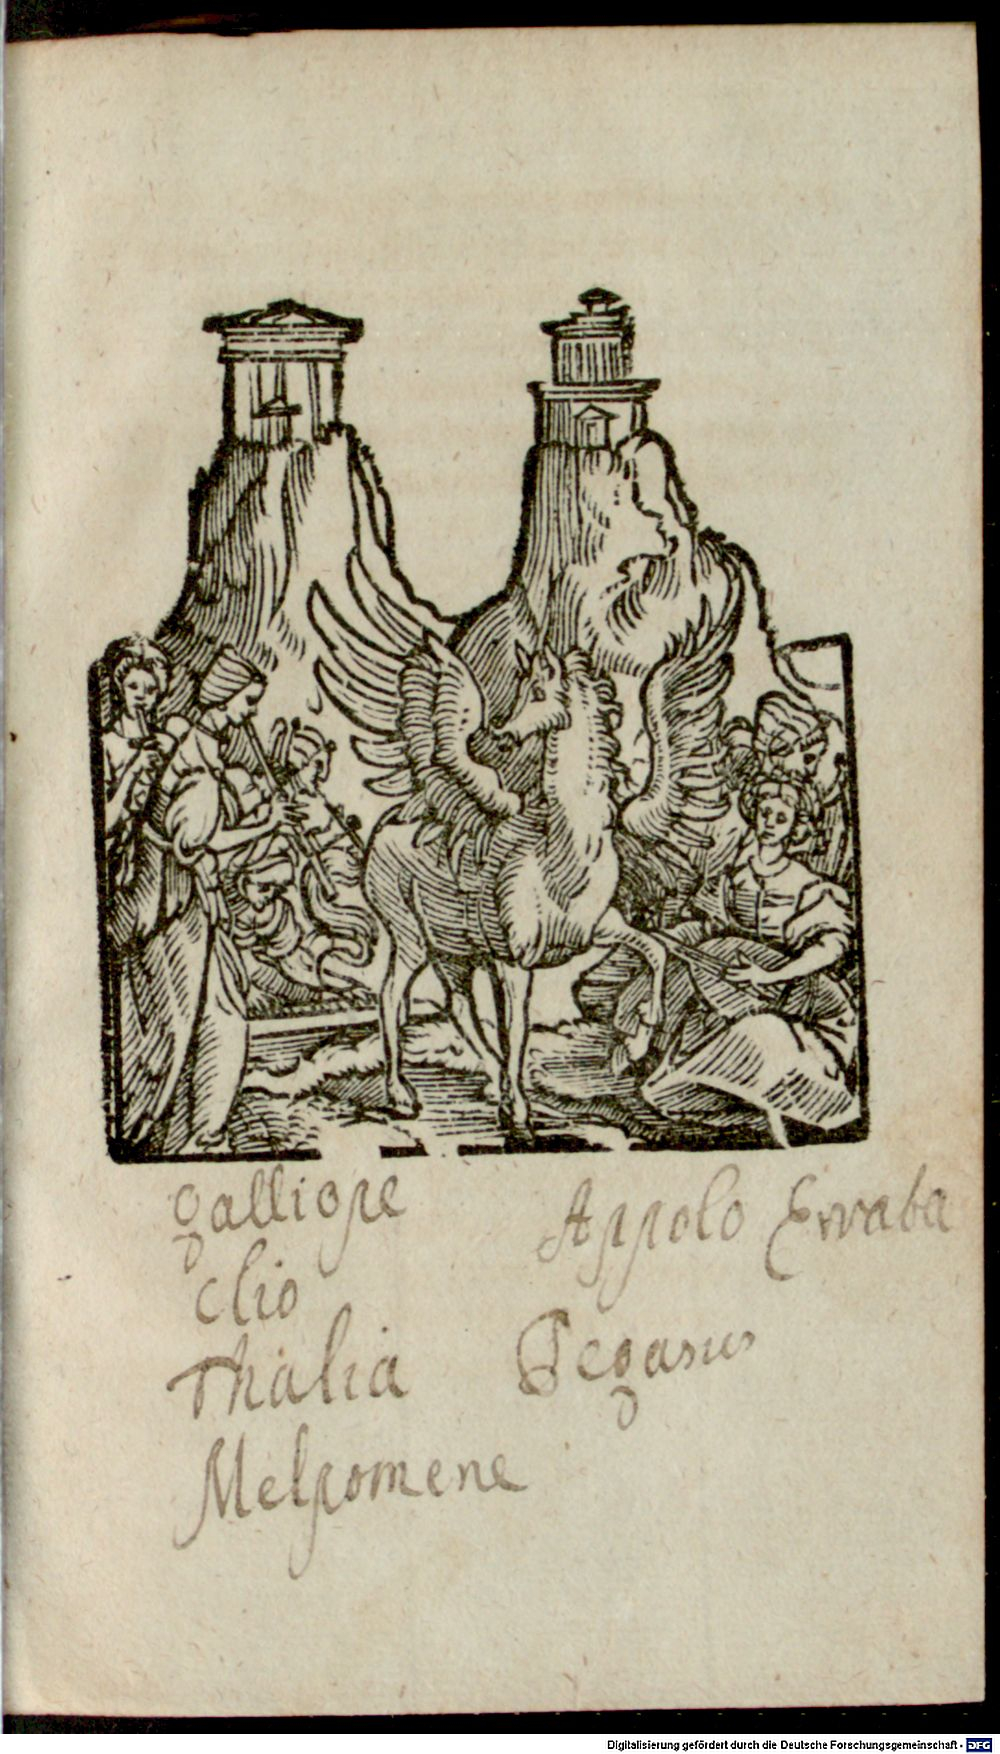 Calliope
Clio
Thalia
Melpomene
Appolo
Pegasus
Digitalisierung gefördert durch die Deutsche Forschungsgemeinschaft - DFG